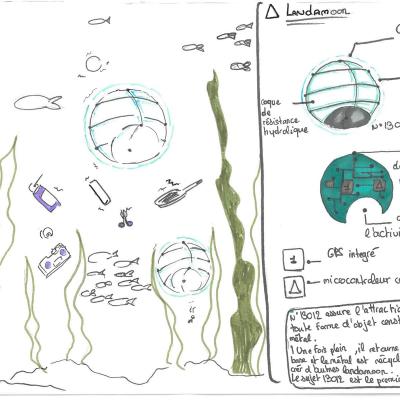 △ Landamoon
coque
de
résistance
hydrolique
N°13O
l'activi
1 GPS intégré
△ microcontroleur c
N°13012 assure l'attractio
toute forme d'objet const
métal.
! Une fois plein, il retourne
base et le métal est recyclé
d'autres landamoon.
Le sujet 13012 est le premie